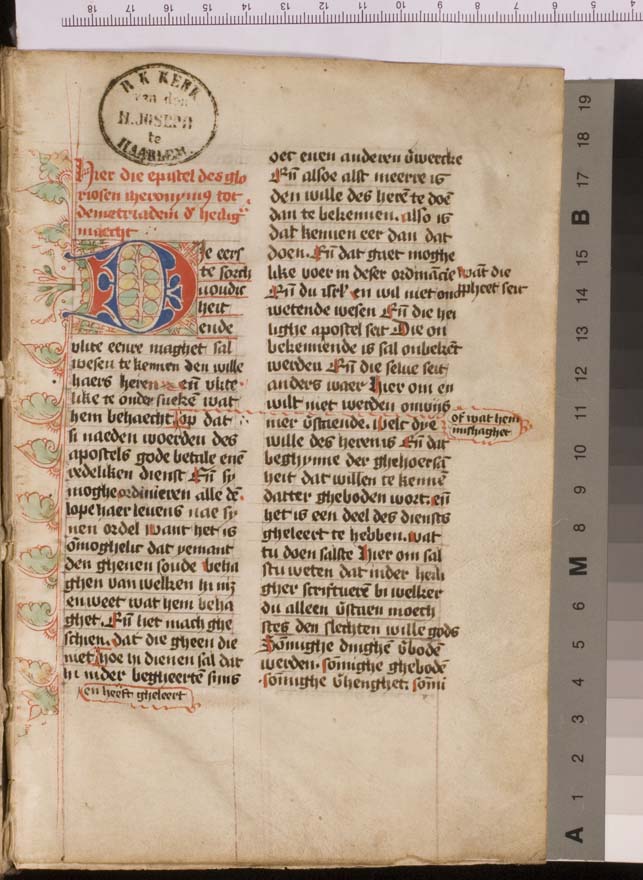 R K KERK
van den
H. JOSEPH
te
HAARLEM
Hier die epistel des glo
riosen iheronimus tot
demetriadem d' heilig'
maecht
Die eers
te sorch
uoudic
heit
ende
vlite eenre maghet sal
wesen te kennen den wille
haers heren eñ vlite
like te onder sueke wat
hem behaecht op dat
si naeden woerden des
apostels gode betale ene
redeliken dienst Eñ si
moghe ordinieren alle de
lope haer leuens nae sy
nen ordel want het is
omoghelic dat yemant
den ghenen soude beha
ghen van welken hi niet
en weet wat hem beha
ghet. Eñ het mach ghe
schien. dat die gheen die
niet hoe hi dienen sal dat
hi inder begheerten sijns
en heeft gheleert
oec enen anderen verwercke
Eñ alsoe alst meerre is
den wille des here te doe
dan te bekennen. also is
dat kennen eer dan dat
doen. Eñ dat gaet moghe
like voer in deser ordinacie want die
pheet seit
Eñ du israel en wil niet on
wetende wesen Eñ die hei
lighe apostel seit Die on
bekennende is sal onbekent
werden Eñ die selue seit
anders waer Hier om en
wilt niet werden onwijs
mer verstaende. welc dye
of wat hem
mishaghet
wille des heren is Eñ dat
beghynne der ghehoersa
heit dat willen te kenne
datter gheboden wort. eñ
het is een deel des diensts
gheleert te hebben. wat
tu doen salste Hier om sal
stu weten dat inder heili
gher scriftuere bi welker
du alleen verstaen moech
stes den slechten wille gods
Somighe dinghe verbode
werden. somighe ghebode
somighe verhenghet. somi